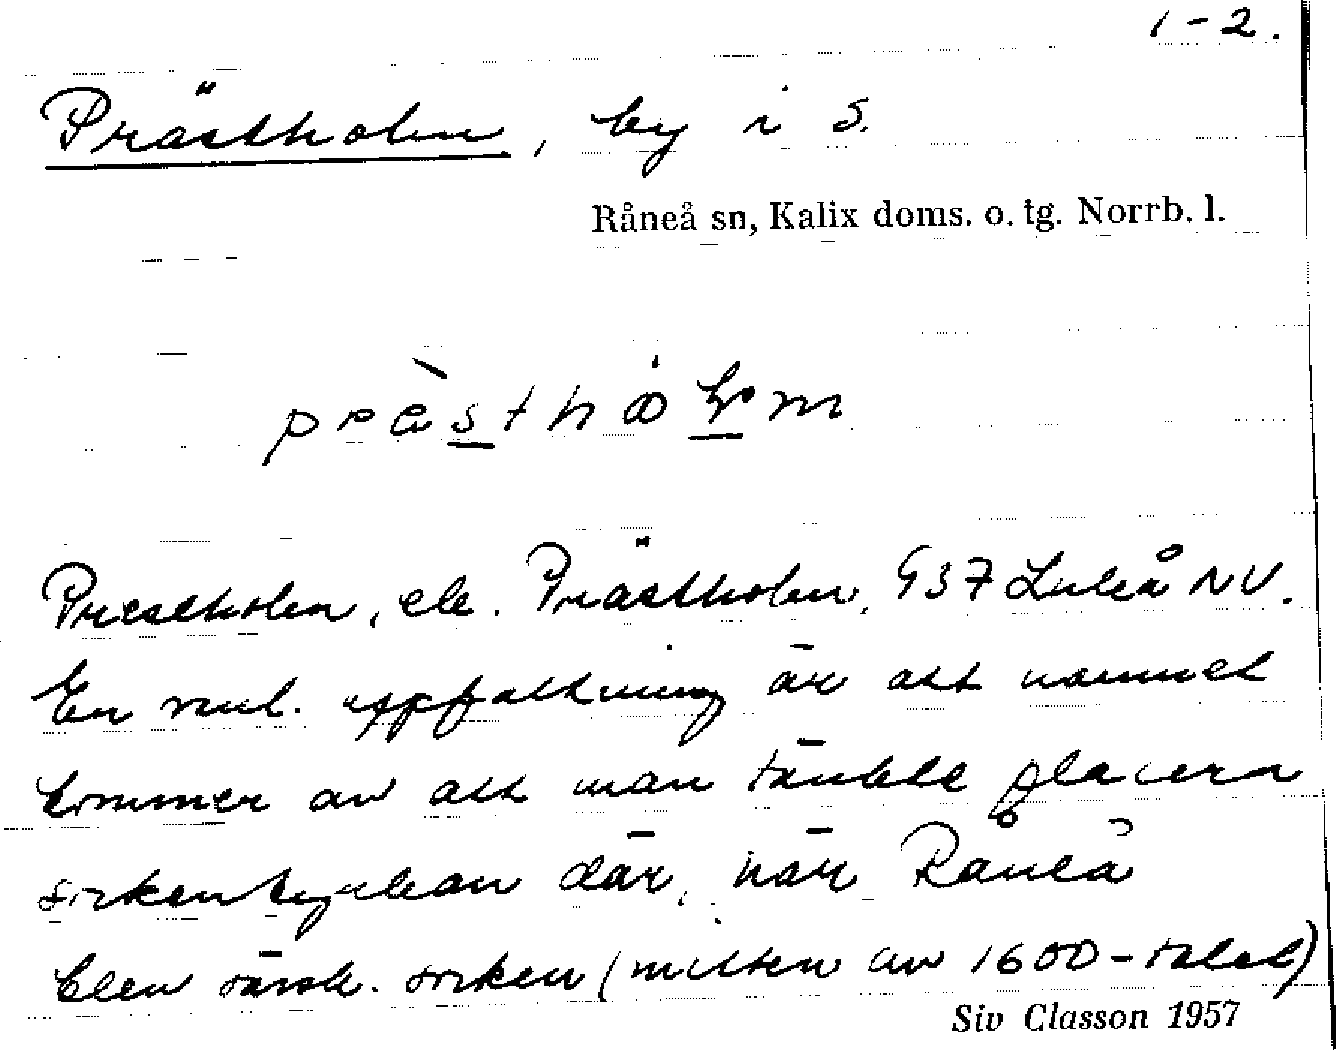 1-2.
Prästholm, by i s.
Råneå sn, Kalix doms. o. tg. Norrb. l.
Prestholm, ek. Prästholm, 937 Luleå NV.
En vanl. uppfattning är att namnet
kommer av att man tänkte placera
sockenkyrkan där, när Råneå
blev särsk. socken (mitten av 1600-talet)
Siv Classon 1957